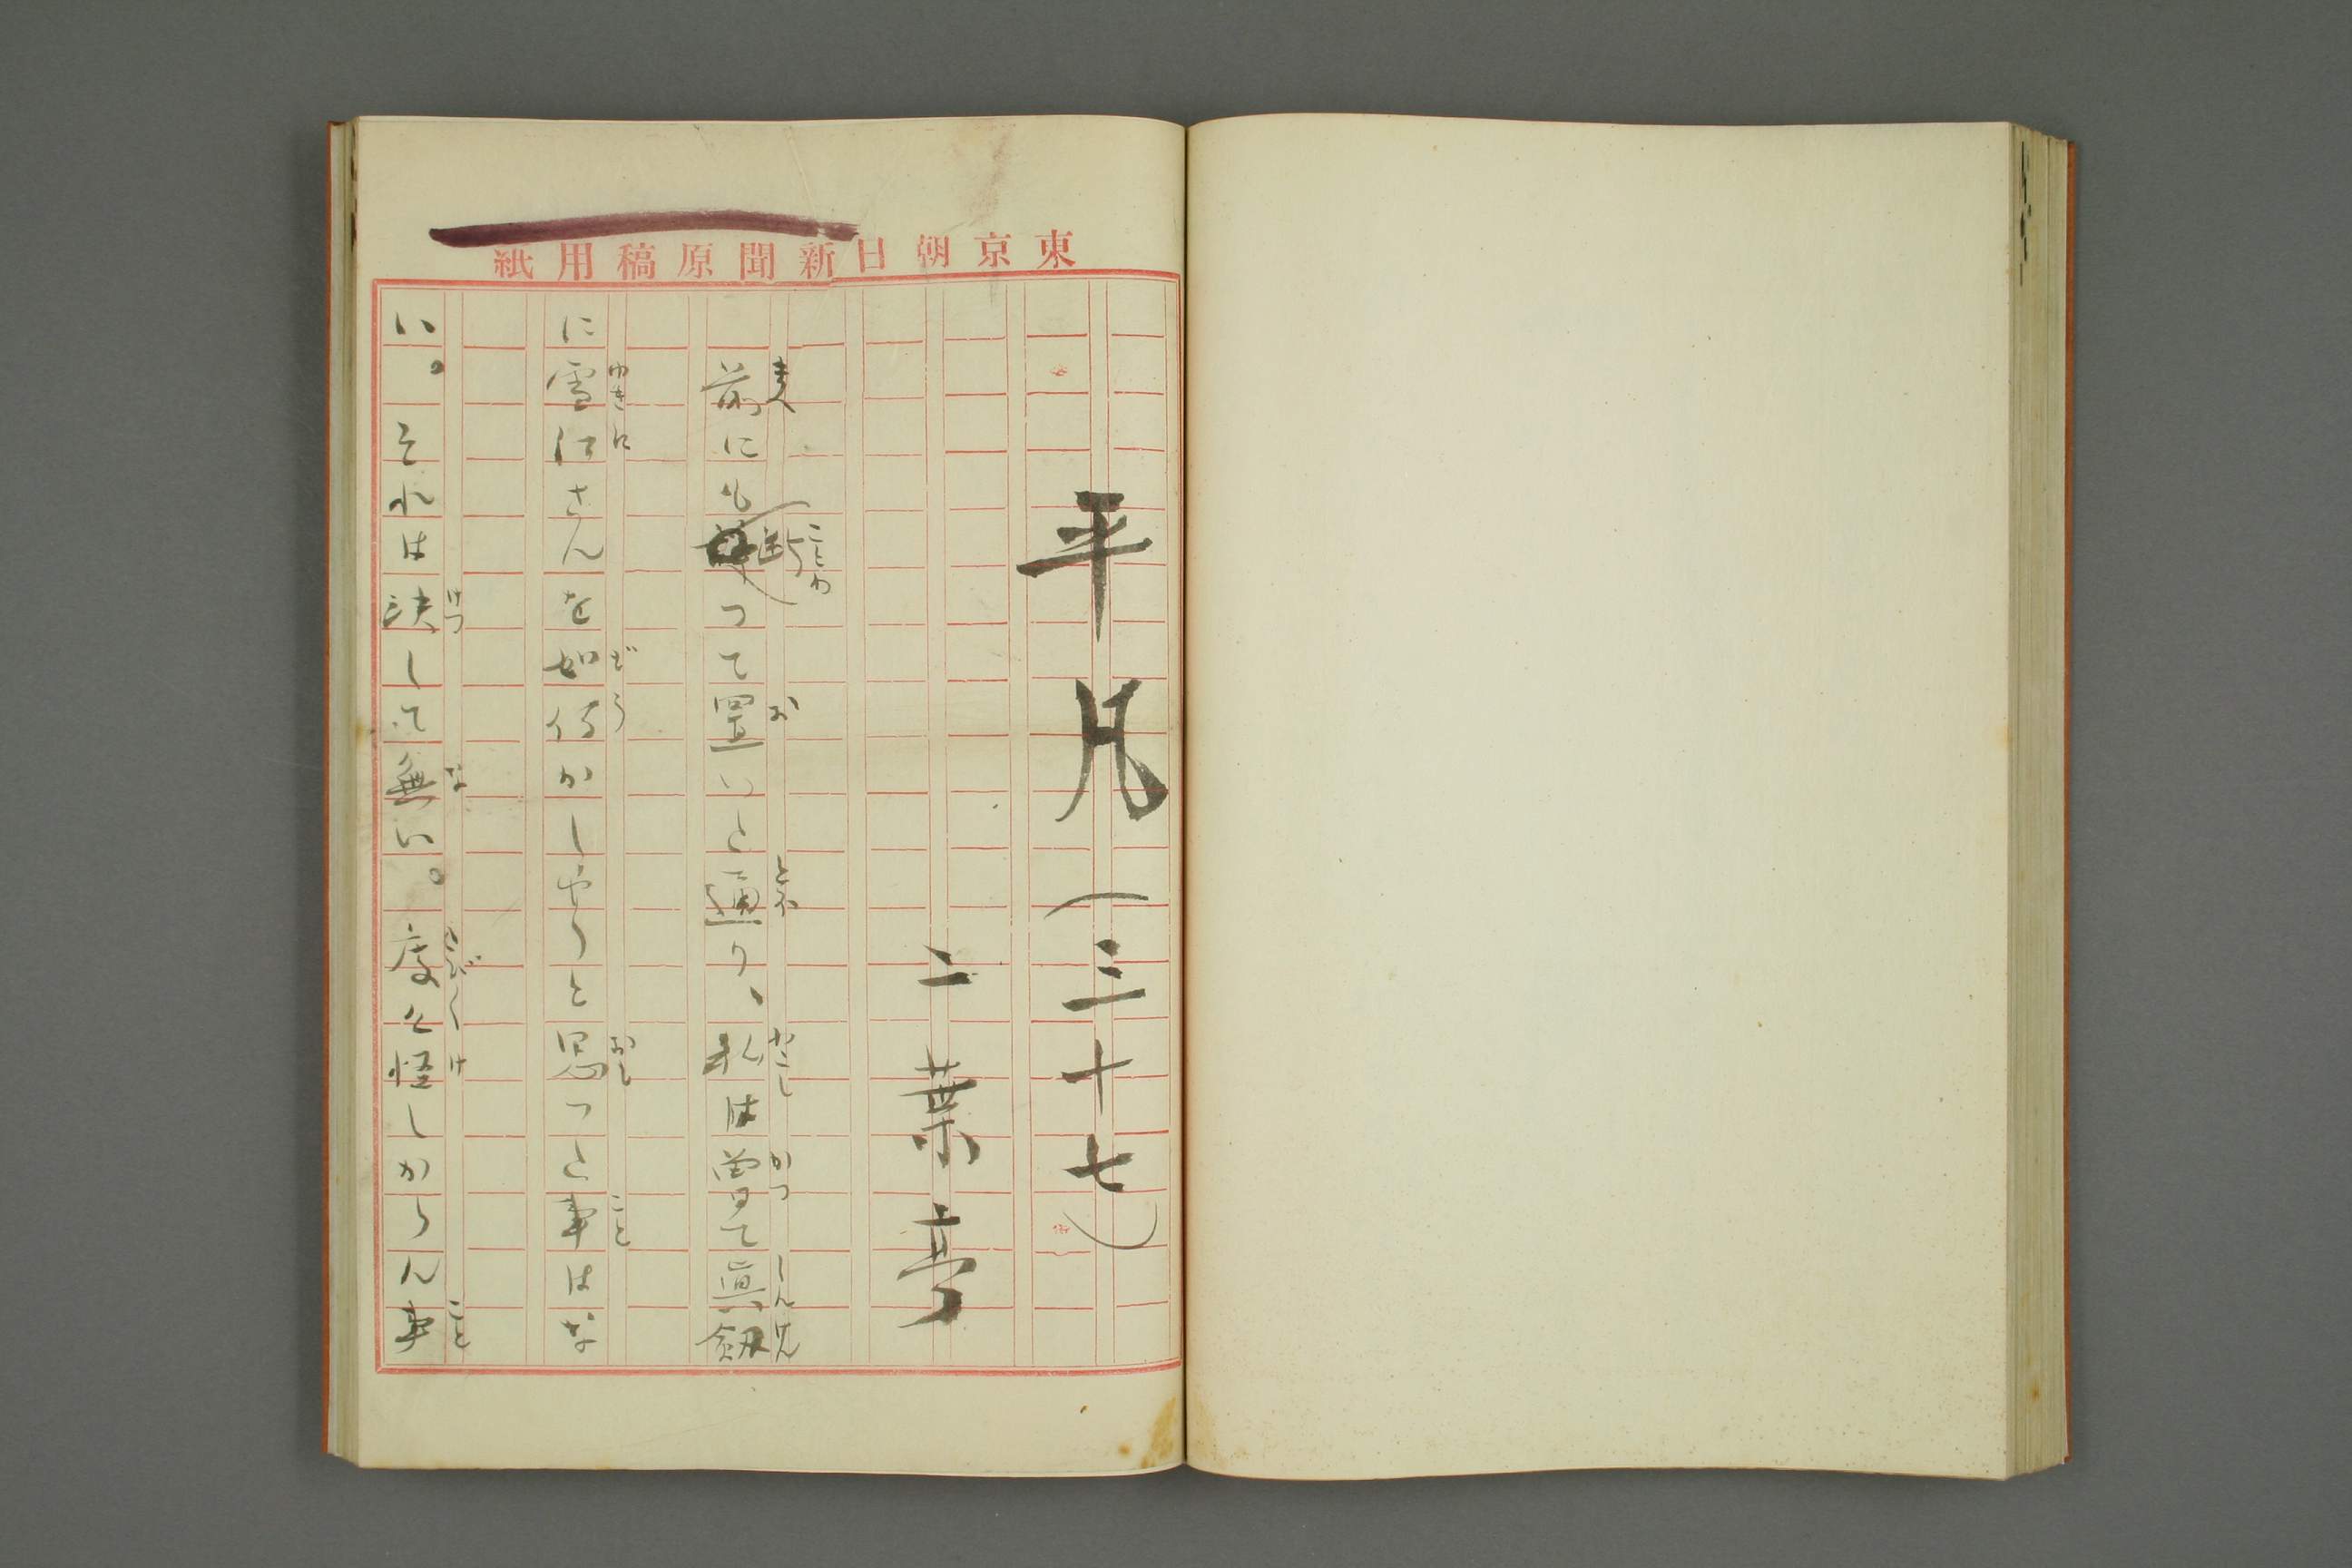 東京朝日新聞原稿用紙
平凡（三十七）
二葉亭
前にも断つて置いた通り、私は曽て眞劔
に雪江さんを如何かしやうと思つた事はな
い。それは決して無い。度々怪しからん事